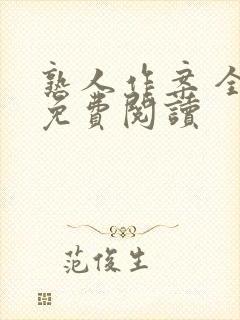 熟人作案全
免費閱讀
范俊生